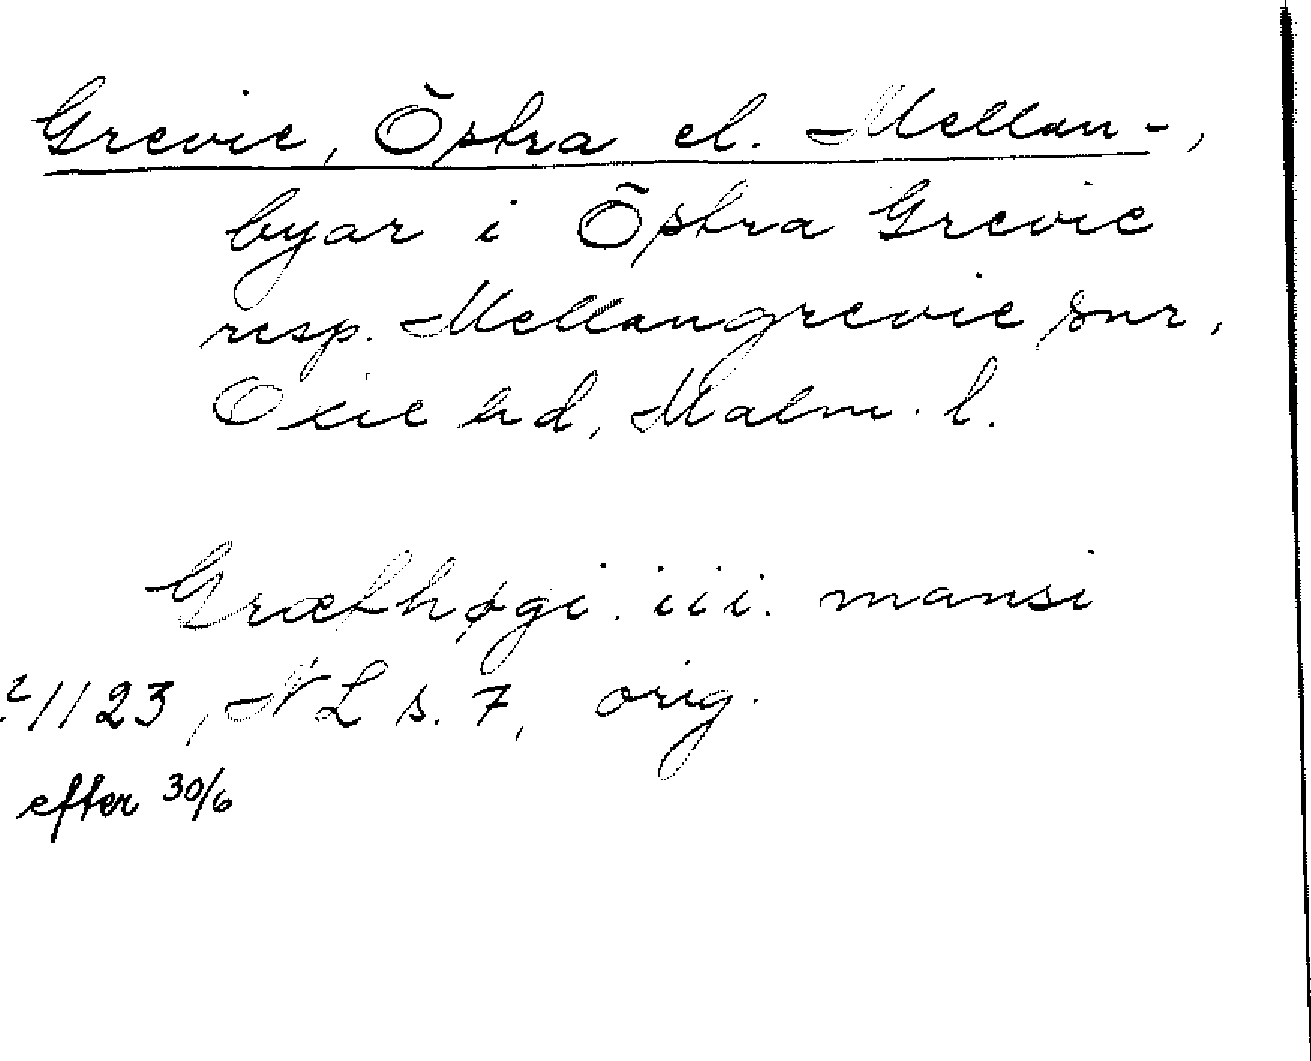 Grevie, Östra el. Mellan-,
byar i Östra Grevie
resp. Mellangrevie snr,
Oxie hd, Malm. l.
Græfhøgi. iii. mansi
1123, NL s. 7, orig.
efter 30/6